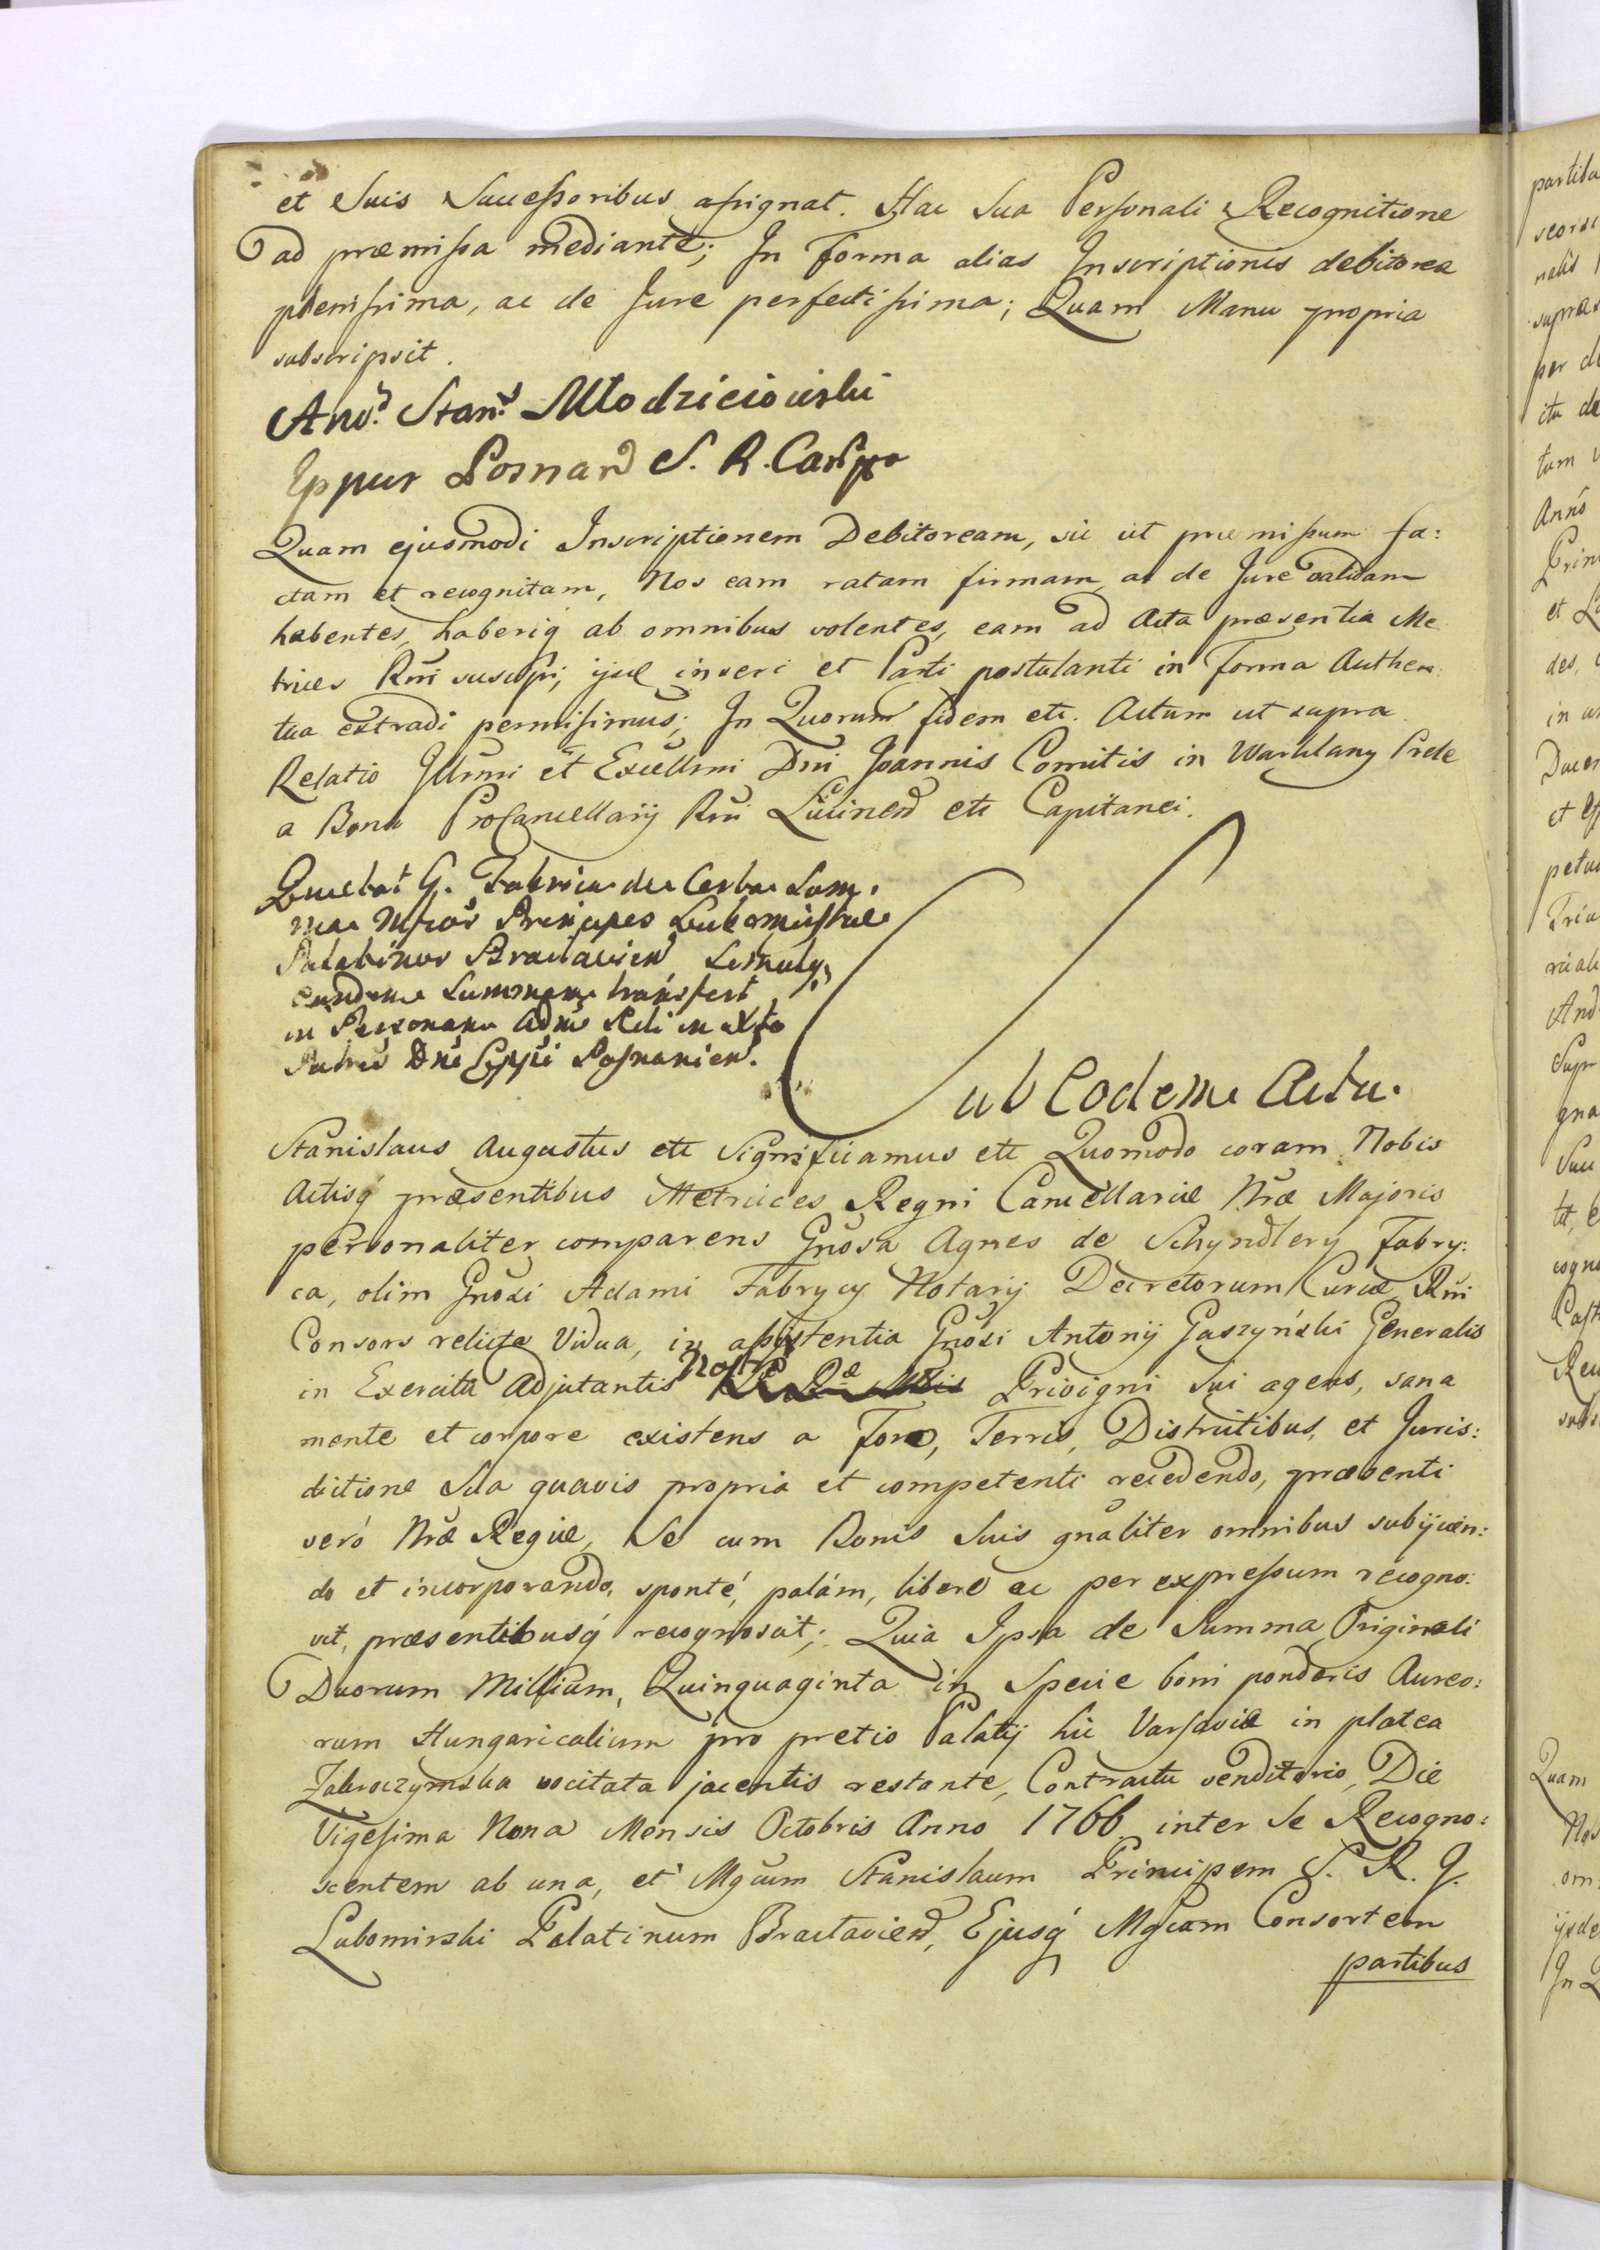 et Suis Successoribus assignat. Hac Sua Personali Recognitione
ad præmissa mediante; In Forma alias Inscriptionis debitorea
plenissima, ac de Jure perfectissima; Quam Manu propria
subscripsit.
And. Stan. Młodzieiowski
Eppus Posnan S. R. Canc
Quam ejusmodi Inscriptionem Debitoream, sic ut præmissum fa:
ctam et recognitam, Nos eam ratam firmam, ac de Jure validam
habentes, haberiq ab omnibus volentes, eam ad Acta præsentia Me
trices Rni suscipi, ijsq inseri et Parti postulanti in Forma Authen
tica extradi permisimus; In Quorum fidem etc. Actum ut supra
Relatio Illmi et Excellmi Dni Joannis Comitis in Warklany
a Borch ProCancellarij Rni Lucinen etc Capitanei.
Quietat G. Fabrica de Certa Sum,
ma Mficos Principes Lubomirskie
Palatinos Braclavien Simulq,
eandem Summam transfert
in Personam
Patris Dni Eppi Posnanien.
Sub Eodem Actu.
Stanislaus Augustus etc Significamus etc Quomodo coram Nobis
Actisq præsentibus Metrices Regni Cancellariæ Nræ Majoris
personaliter comparens Gnosa Agnes de Schyndlery Fabry:
ca, olim Gnosi Adami Fabrycy Notarij Decretorum Curiæ Rni
Consors relicta Vidua, in assistentia Gnosi Antonij Gaszyński Generalis
in Exercitu Adjutantis Nostri Privigni Sui agens, sana
mente et corpore existens a Foro, Terris, Districtibus, et Juris:
dictione Sua quavis propria et competenti recedendo, præsenti
verò Nræ Regiæ, Se cum Bonis Suis gnaliter omnibus subijcien:
do et incorporando, sponté, palám, libere ac per expressum recogno:
vit, præsentibusq recognoscit; Quia Ipsa de Summa Originali
Duorum Millium, Quinquaginta in Specie boni ponderis Aureo:
rum Hungaricalium pro pretio Palatij hic Varsaviæ in platea
Zakroczymska vocitata jacentis restante, Contractu venditorio, Die
Vigesima Nona Mensis Octobris Anno 1766 inter Se Recogno:
scentem ab una, et Mgcum Stanislaum Principem S. R. J.
Lubomirski Palatinum Braclavien, Ejusq Mgcam Consortem
partibus